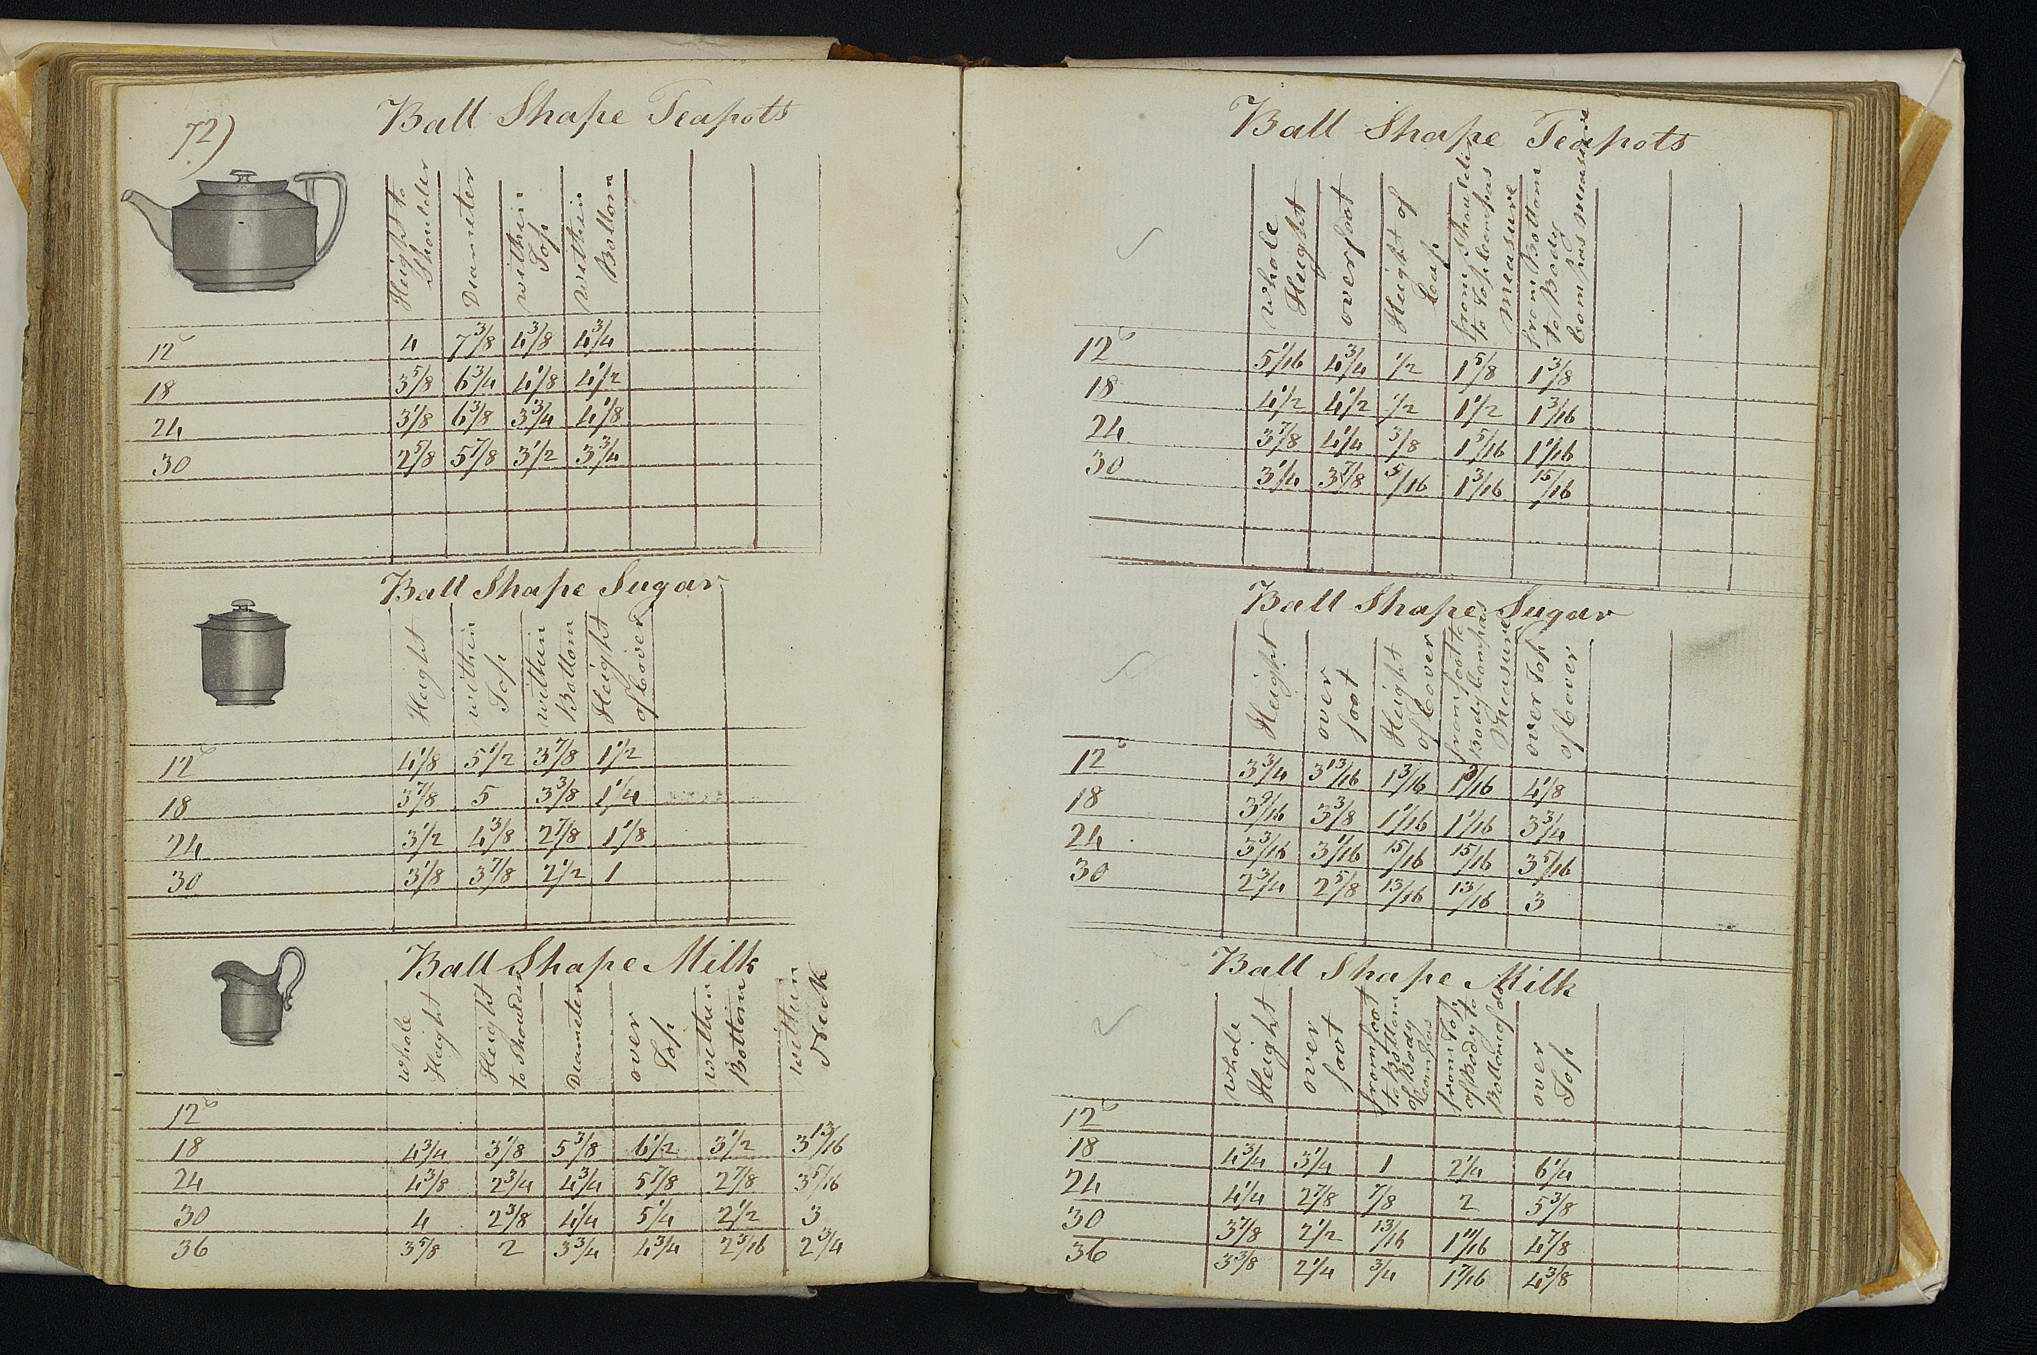 72)
Ball Shape Teapots
Height to Shoulder | Diameter | within Top | within Bottom
12s | 4 | 7 3/8 | 4 3/8 | 4 3/4
18 | 3 5/8 | 6 3/4 | 4 1/8 | 4 1/2
24 | 3 1/8 | 6 3/8 | 3 3/4 | 4 1/8
30 | 2 5/8 | 5 7/8 | 3 1/2 | 3 3/4
Ball Shape Sugar
Height | within Top | within Bottom | Height of Cover
12s | 4 1/8 | 5 1/2 | 3 7/8 | 1 1/2
18 | 3 7/8 | 5 | 3 3/8 | 1 1/4
24 | 3 1/2 | 4 3/8 | 2 7/8 | 1 1/8
30 | 3 1/8 | 3 7/8 | 2 1/2 | 1
Ball Shape Milk
whole Height | Height to Shoulder | Diameter | over Top | within Bottom | within Neck
12s
18 | 4 3/4 | 3 1/8 | 5 3/8 | 6 1/2 | 3 1/2 | 3 13/16
24 | 4 3/8 | 2 3/4 | 4 3/4 | 5 7/8 | 2 7/8 | 3 5/16
30 | 4 | 2 3/8 | 4 1/4 | 5 1/4 | 2 1/2 | 3
36 | 3 5/8 | 2 | 3 3/4 | 4 3/4 | 2 3/16 | 2 3/4
Ball Shape Teapots
whole Height | over foot | Height of Cap | from Shoulder to Top Compas Measure | from Bottom to Body Compas Measure
12s | 5 1/16 | 4 3/4 | 1/2 | 1 5/8 | 1 3/8
18 | 4 1/2 | 4 1/2 | 1/2 | 1 1/2 | 1 3/16
24 | 3 7/8 | 4 1/4 | 3/8 | 1 5/16 | 1 1/16
30 | 3 1/4 | 3 7/8 | 5/16 | 1 3/16 | 15/16
Ball Shape Sugar
Height | over foot | Height of Cover | from foot to Body Compas Measure | over Top of Cover
12s | 3 3/4 | 3 13/16 | 1 3/16 | 1 3/16 | 4 1/8
18 | 3 9/16 | 3 3/8 | 1 1/16 | 1 1/16 | 3 3/4
24 | 3 3/16 | 3 1/16 | 15/16 | 15/16 | 3 5/16
30 | 2 3/4 | 2 5/8 | 13/16 | 13/16 | 3
Ball Shape Milk
whole Height | over foot | from foot to Bottom of Body Compas | from Top of Body to Bottom of do | over Top
12s
18 | 4 3/4 | 3 1/4 | 1 | 2 1/4 | 6 1/4
24 | 4 1/4 | 2 7/8 | 7/8 | 2 | 5 3/8
30 | 3 7/8 | 2 1/2 | 13/16 | 1 11/16 | 4 7/8
36 | 3 3/8 | 2 1/4 | 3/4 | 1 7/16 | 4 3/8